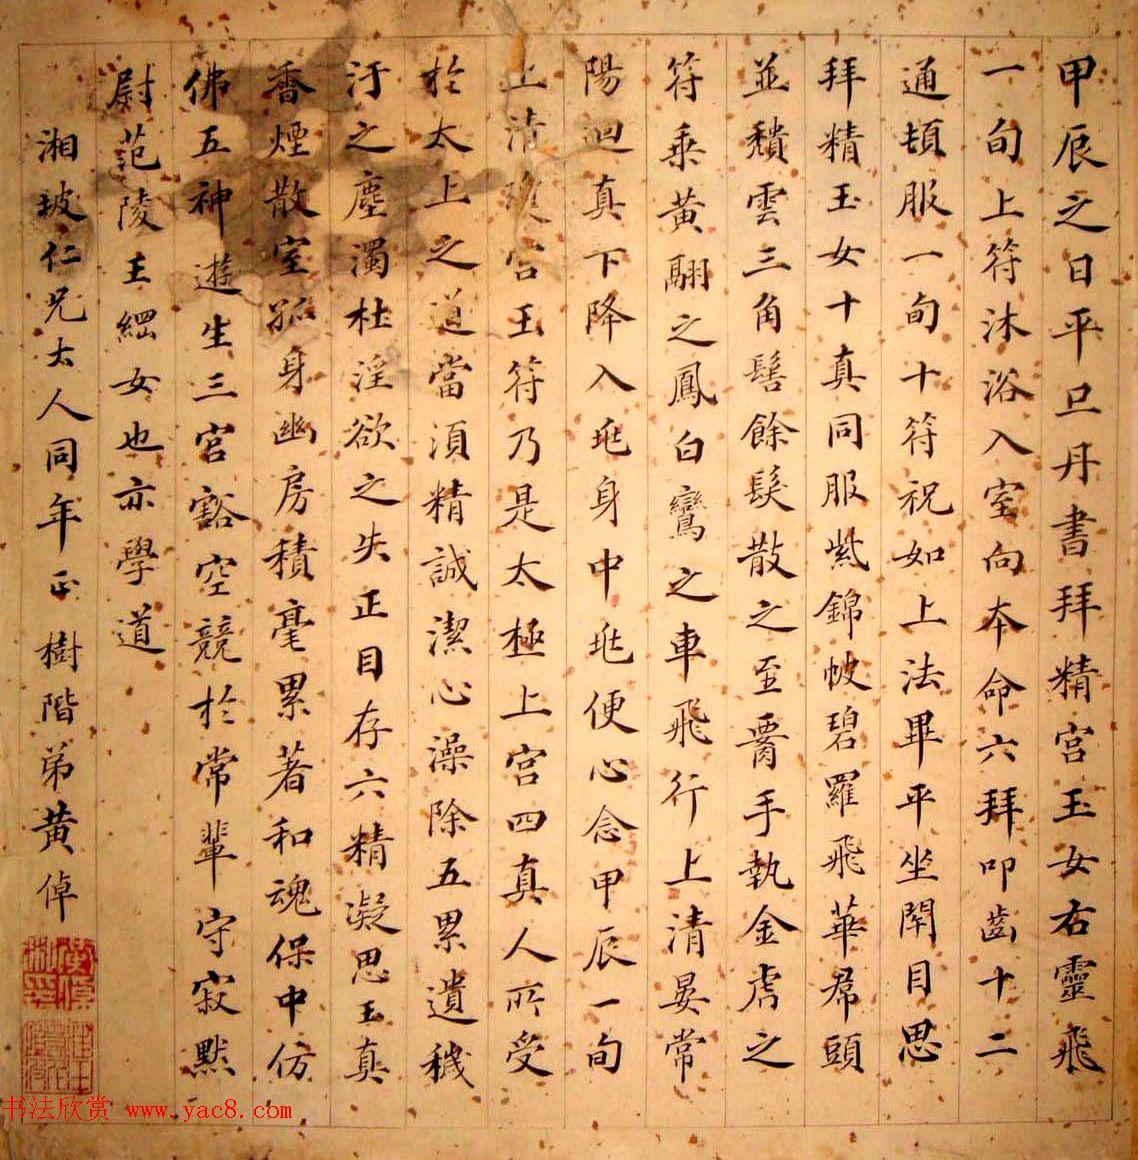 甲辰之日平旦丹書拜精宮玉女右靈飛
一旬上符沐浴入室向本命六拜叩齒十二
通頓服一旬十符祝如上法畢平坐閉目思
拜精玉女十真同服紫錦帔碧羅飛華帬頭
並穨雲三角髻餘髮散之至腰手執金虎之
符乘黃翮之鳳白鸞之車飛行上清晏常
陽迴真下降入兆身中兆便心念甲辰一旬
上清瓊宮玉符乃是太極上宮四真人所受
於太上之道當須精誠潔心澡除五累遺穢
汙之塵濁杜淫欲之失正目存六精凝思玉真
香煙散室孤身幽房積毫累著和魂保中仿
佛五神遊生三宮豁空競於常輩守寂默
尉范陵王綱女也亦學道
湘坡仁兄大人同年正樹階弟黃倬
书法欣赏 www.yac8.com